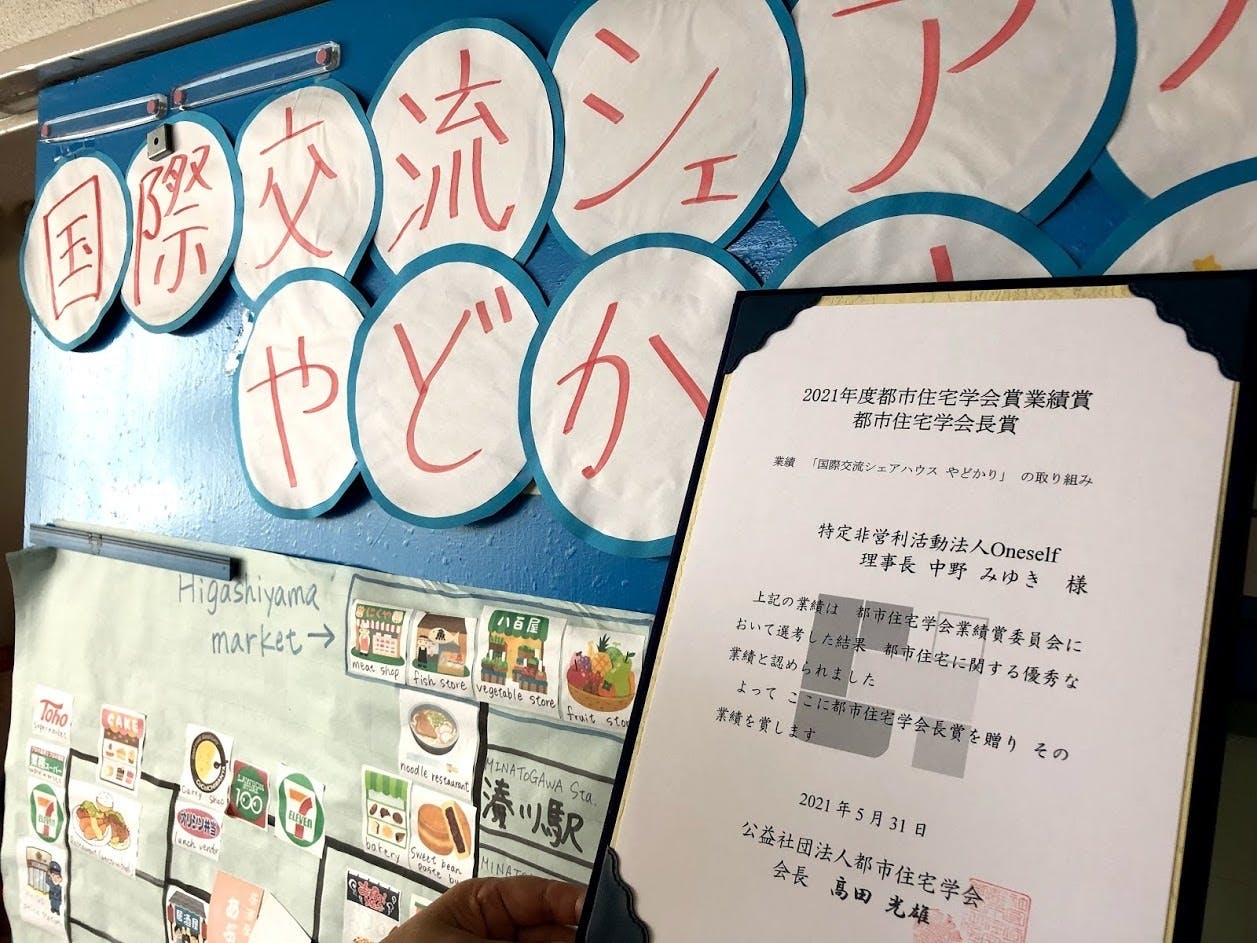 国際交流シェア
やどか
2021年度都市住宅学会賞業績賞
都市住宅学会長賞
業績 「国際交流シェアハウス やどかり」 の取り組み
特定非営利活動法人Oneself
理事長 中野 みゆき 様
上記の業績は 都市住宅学会業績賞委員会に
おいて選考した結果 都市住宅に関する優秀な
業績と認められました
よって ここに都市住宅学会長賞を贈り その
業績を賞します
2021年5月31日
公益社団法人都市住宅学会
会長 髙田 光雄
Higashiyama
market →
にくや
八百屋
meat shop
fish store
vegetable store
fruit
noodle restaurant
Toho
supermarket
CAKE
curry shop
100
7 ELEVEN
7 ELEVEN
オリジン弁当
lunch
bakery
sweet bean
paste
MINATOGAWA Sta.
湊川駅
MINATO
居酒屋